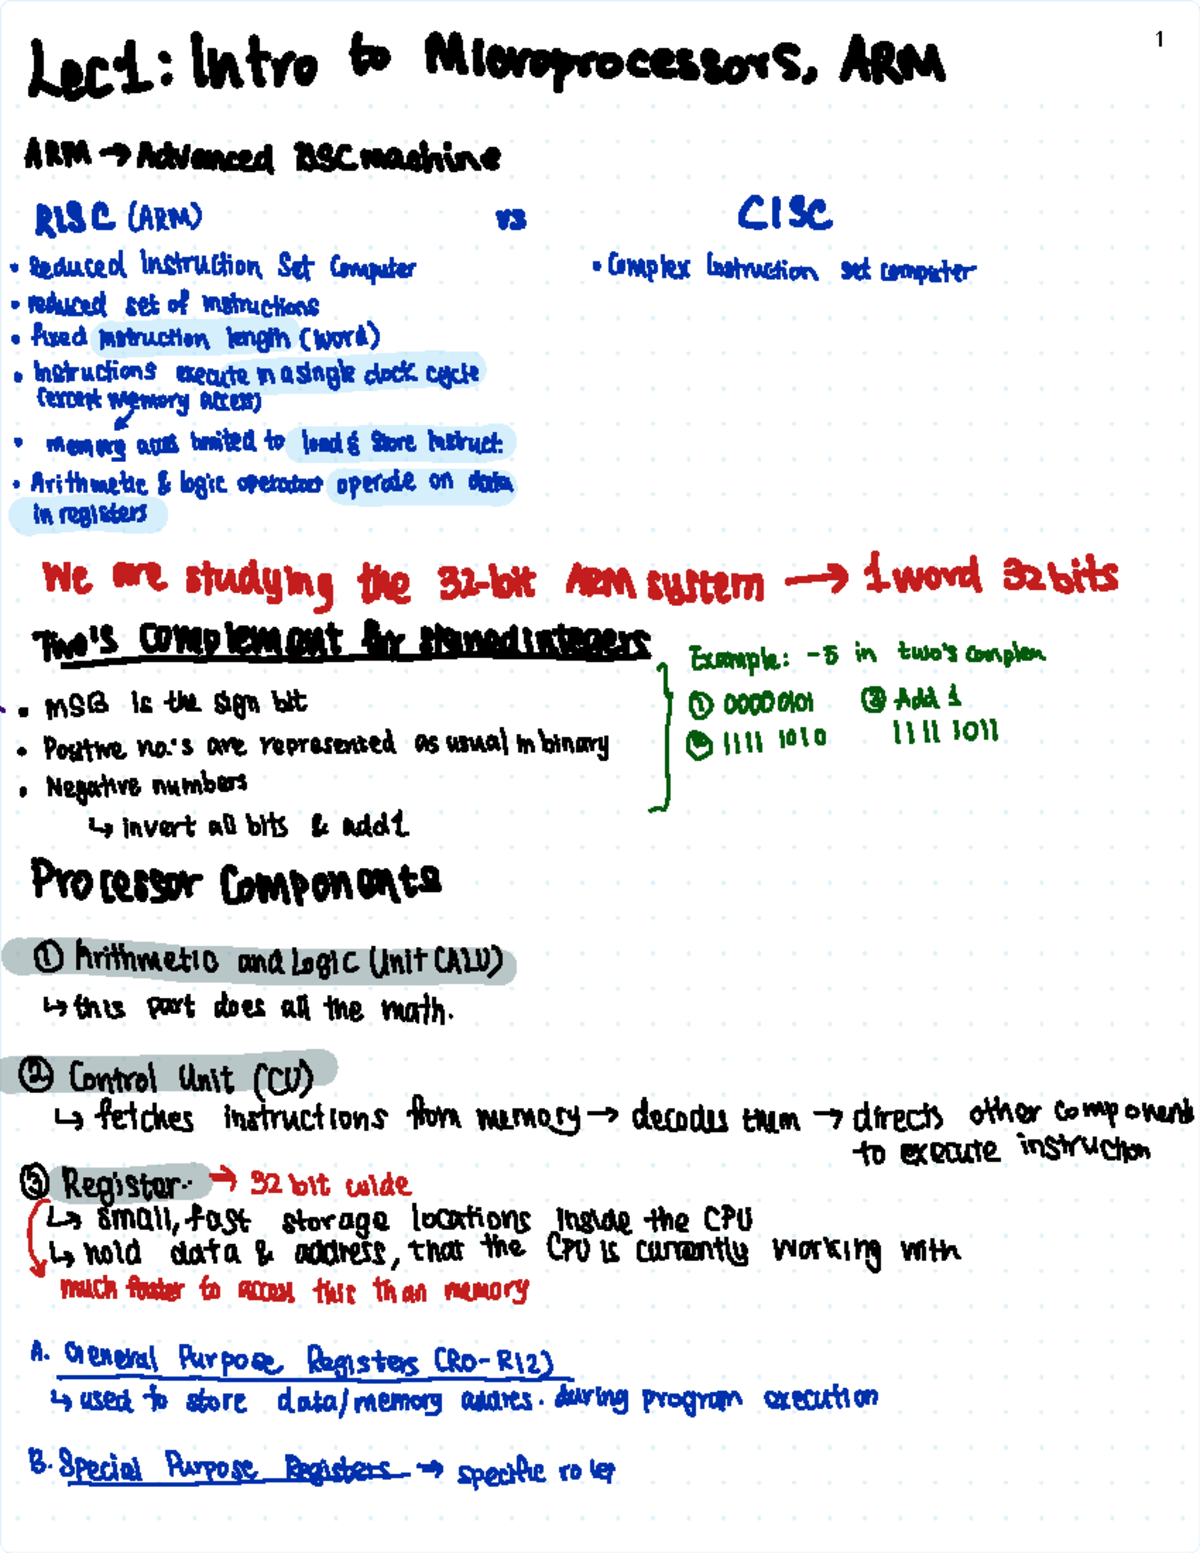 1
Lec1: Intro to Microprocessors, ARM
ARM → Advanced RISC machine
RISC (ARM) vs CISC
• Reduced Instruction Set Computer
• Complex Instruction set computer
• reduced set of instructions
• fixed instruction length (word)
• Instructions execute in a single clock cycle
(except memory access)
• memory access limited to load & store instruct.
• Arithmetic & logic operations operate on data
in registers
We are studying the 32-bit ARM system → 1 word 32 bits
Two's complement for signed integers
• MSB is the sign bit
• Positive no.'s are represented as usual in binary
• Negative numbers
↳ invert all bits & add 1
Example: -5 in two's complem
① 00000101 ③ Add 1
② 1111 1010 1111 1011
Processor Components
① Arithmetic and Logic (Unit CALU)
↳ this part does all the math.
② Control Unit (CU)
↳ fetches instructions from memory → decodes them → directs other components
to execute instruction
③ Register.. → 32 bit wide
↳ small, fast storage locations inside the CPU
↳ hold data & address, that the CPU is currently working with
much faster to access this than memory
A. General Purpose Registers (R0-R12)
↳ used to store data/memory addres. during program execution
B. Special Purpose Registers → specific roles